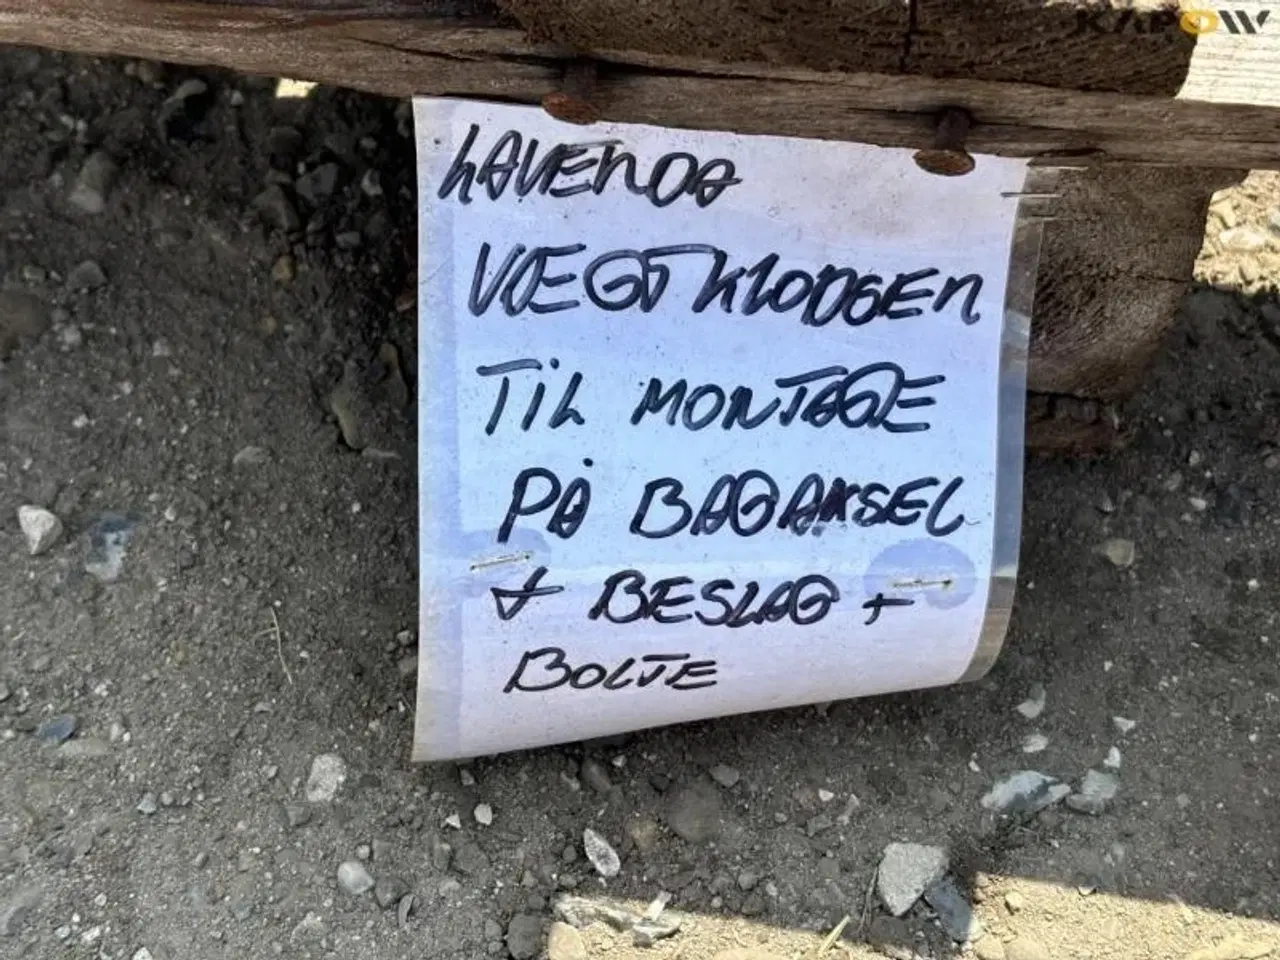 KAPOW
LAVENDA
VÆGTKLODSEN
TIL MONTAGE
PÅ BAGAKSEL
+ BESLAG +
BOLTE